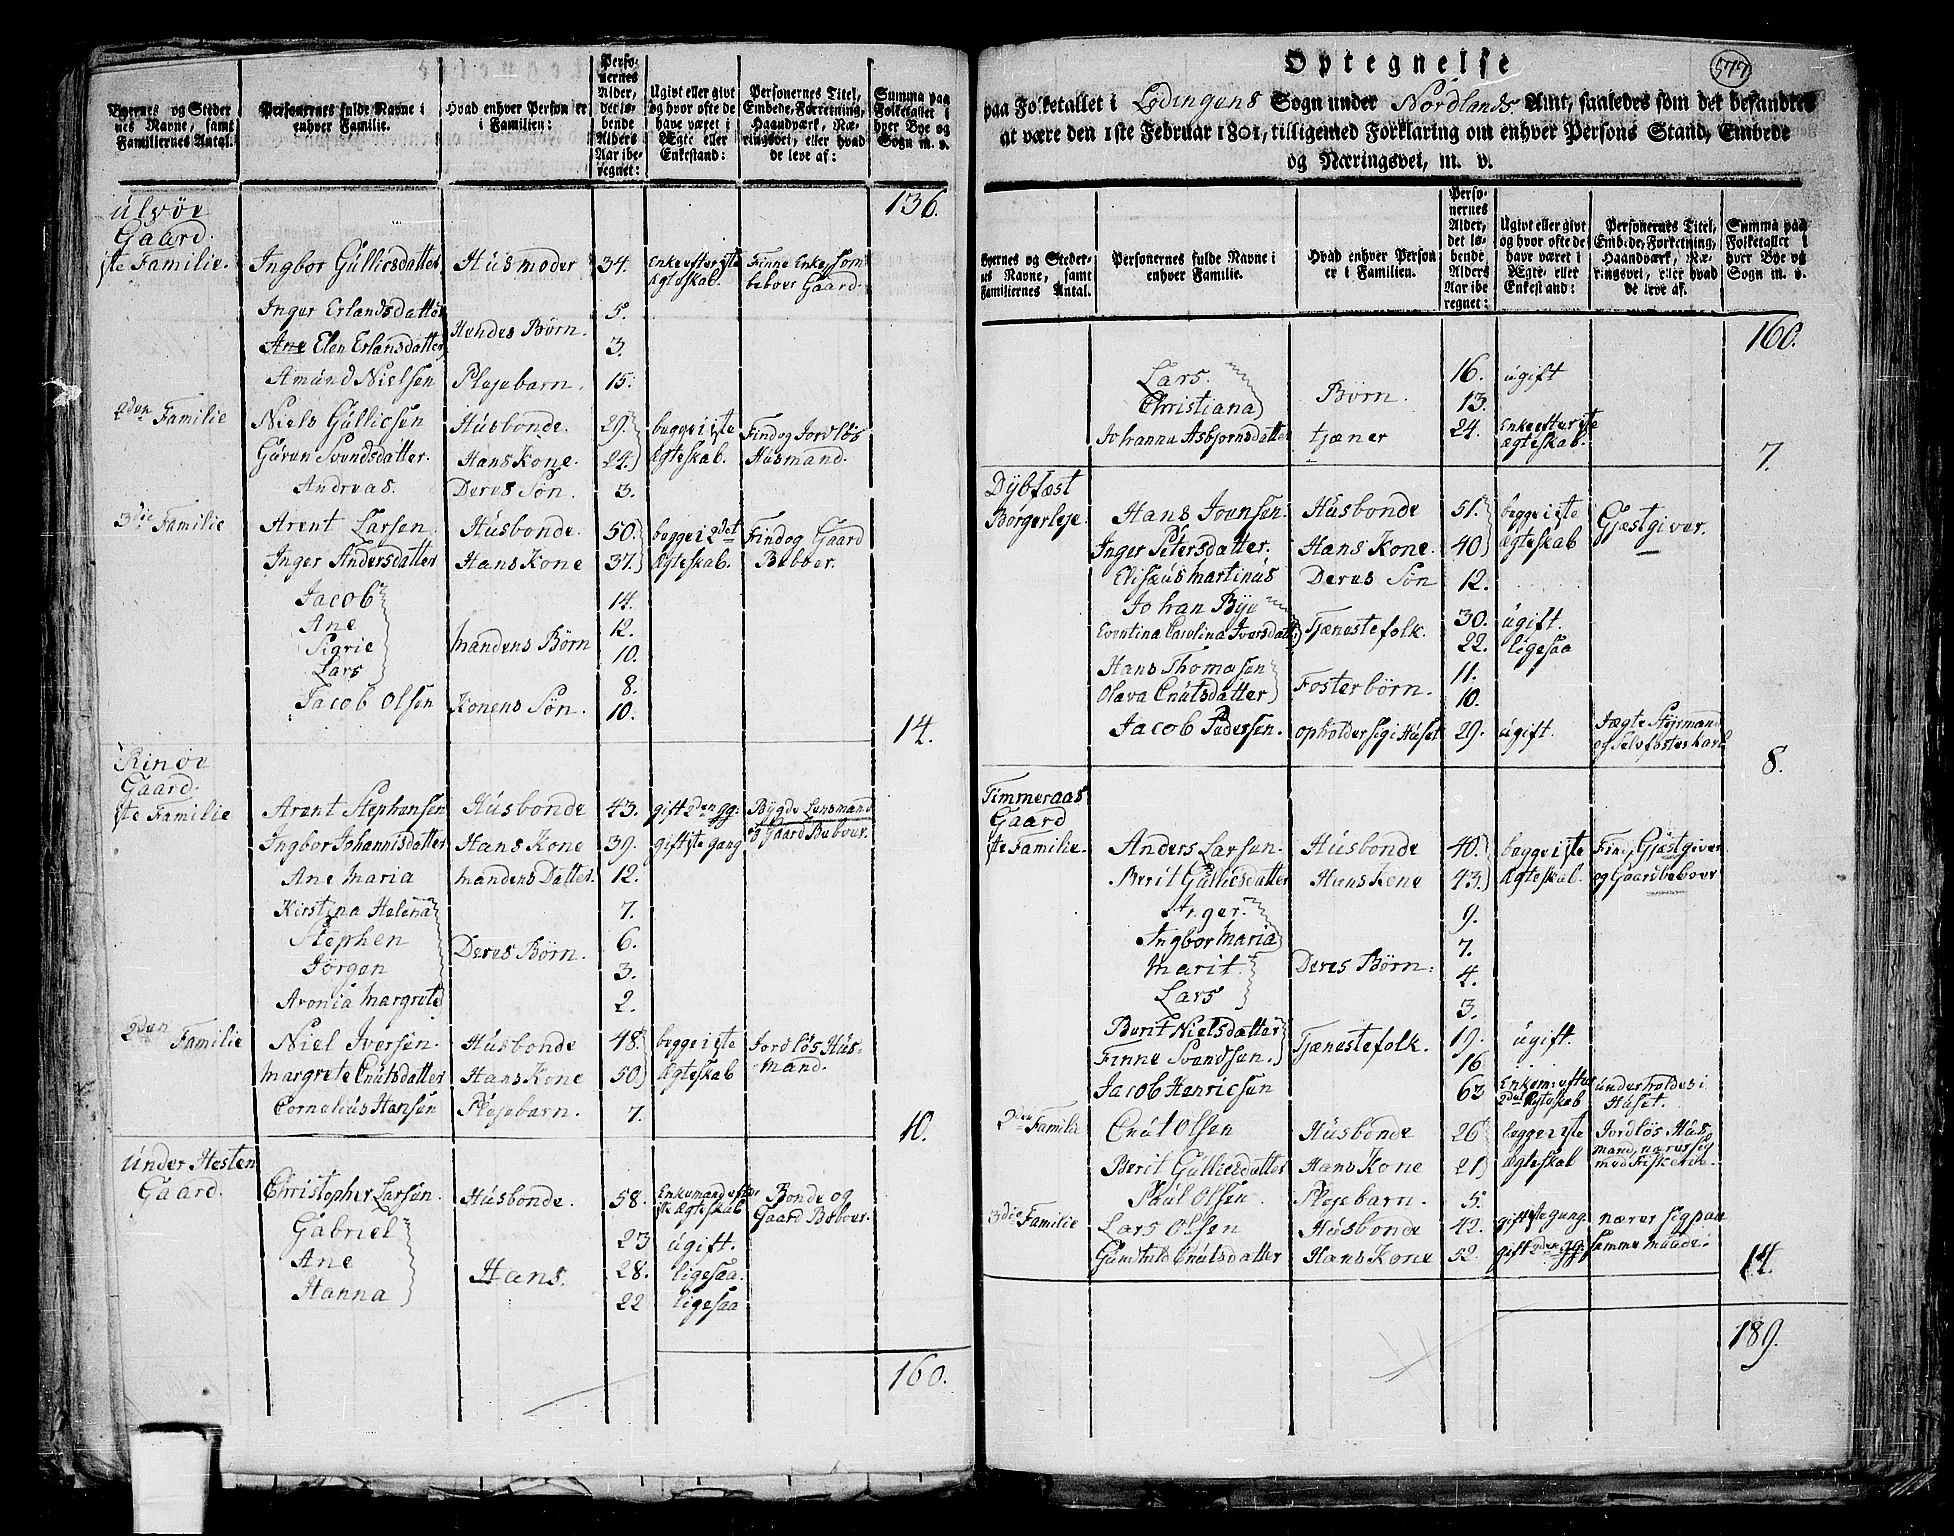 Byernes og Steder
nes Navne, samt
Familiernes Antal.
Personernes fulde Navne i
enhver Familie.
Hvad enhver Person er
i Familien:
Perso-
nernes
Alder,
det lø-
bende
Alders
Aar ibe-
regnet:
Ugivt eller givt
og hvor ofte de
have været i
Ægte eller
Enkestand:
Personernes Titel,
Embede, Forretning,
Haandværk, Næ-
ringsvei, eller hvad
de leve af:
Summa paa
Folketallet i
hver Bye og
Sogn m. v.
136.
Ulvöe
Gaard.
1te Familie. Ingbor Gullicsdatter Husmoder 34. Enke efter 1ste Finne Enke, som
Ægteskab. beboer Gaard.
Inger Erlandsdatter 5.
Hendes Børn
Ane Elen Erlansdatter 3.
Amund Nielsen Plejebarn. 15.
2den Familie Niels Gullicsen Husbonde. 29. begge i 1ste Find og Jordløs
Guren Svendsdatter. Hans Kone. 24. Ægteskab. Husmand.
Andreas. Deres Søn. 3.
3die Familie Arent Larsen Husbonde. 50. begge i 2det Find og Gaard
Inger Andersdatter Hans Kone 37. Ægteskab. Beboer.
Jacob 14.
Ane 12.
Mandens Børn
Sigrie 10.
Lars 8.
Jacob Olsen Konens Søn. 10.
14.
Rinöe
Gaard.
1te Familie Arent Stephensen Husbonde 43. gift 2den gg. Bygde Lensmand
og Gaard Beboer.
Ingbor Johannisdatter Hans Kone 39. gift 1ste gang
Ane Maria Mandens Datter. 12.
Kirstina Helena 7.
Stephen 6.
Deres Børn
Jörgen 3.
Aronia Margrete 2.
2den Familie Niel Iversen. Husbonde 48. begge i 1ste Jordløs Hus-
Margrete Cnutsdatter Hans Kone 50 Ægteskab mand.
Cornelius Hansen Plejebarn. 7.
10.
Under Hesten
Gaard. Christopher Larsen. Husbonde. 58. Enkemand efter Bonde og
1te Ægteskab Gaard Beboer.
Gabriel 23 ugift.
Ane Hans. 28. ligesaa.
Hanna 22 ligesaa
160.
Optegnelse
577
paa Folketallet i Lødingens Sogn under Nordlands Amt, saaledes som det befandtes
at være den 1ste Februar 1801, tilligemed Forklaring om enhver Persons Stand, Embede
og Næringsvei, m. v.
Byernes og Steder-
nes Navne, samt
Familiernes Antal.
Personernes fulde Navne i
enhver Familie.
Hvad enhver Person
er i Familien.
Perso-
nernes
Alder,
det lø-
bende
Alders
Aar ibe-
regnet:
Ugivt eller givt
og hvor ofte de
have været i
Ægte- eller
Enkestand:
Personernes Titel,
Embede, Forretning,
Haandværk, Næ-
ringsvei, eller hvad
de leve af.
Summa paa
Folketallet i
hver Bye og
Sogn m. v.
160.
Lars. 16. ugift
Børn.
Christiana 13.
Johanna Asbjornsdatter tjæner 24. Enke efter 1ste
Ægteskab.
7.
Dybfæst
Borgerleje. Hans Jonsen. Husbonde 51. begge i 1ste Gjæstgiver.
Inger Petersdatter. Hans Kone. 40 Ægteskab
Elisæus Martinus Deres Søn 12.
Johan Bye 30. ugift.
Tjænestefolk.
Eventina Carolina Iversdatt. 22. ligesaa
Hans Thomesen 11.
Fosterbörn.
Olava Cnutsdatter 10.
Jacob Pedersen. opholder sig i Huset 29. ugift. Jægte Styrmand
og Selvfosterkarl
8.
Timmeraas
Gaard
1te Familie. Anders Larsen. Husbonde 40. begge i 1ste Find, Gjæstgiver
Berit Gullicsdatter Hans Kone 43. Ægteskab. og Gaardbeboer
Inger. 9.
Ingbor Maria 7.
Deres Børn.
Marit. 4.
Lars 3.
Berit Nielsdatter 19. ugift.
Tjænestefolk.
Finne Svendsen. 16
Jacob Henricsen 63 Enkem. efter underholdes i
2det Ægteskab Huset.
2den Familie Cnut Olsen Husbonde 26 begge i 1ste Jordløs Hus
mand, nærer sig
Berit Gullicsdatter Hans Kone 21 Ægteskab med Fiskerie.
Poul Olsen Plejebarn. 5.
3die Familie Lars Olsen Husbonde 42. gift 1ste gang. nærer sig paa
Gunhild Cnutsdatter Hans Kone 52. gift 2den gg. samme Maade.
14.
189.
413